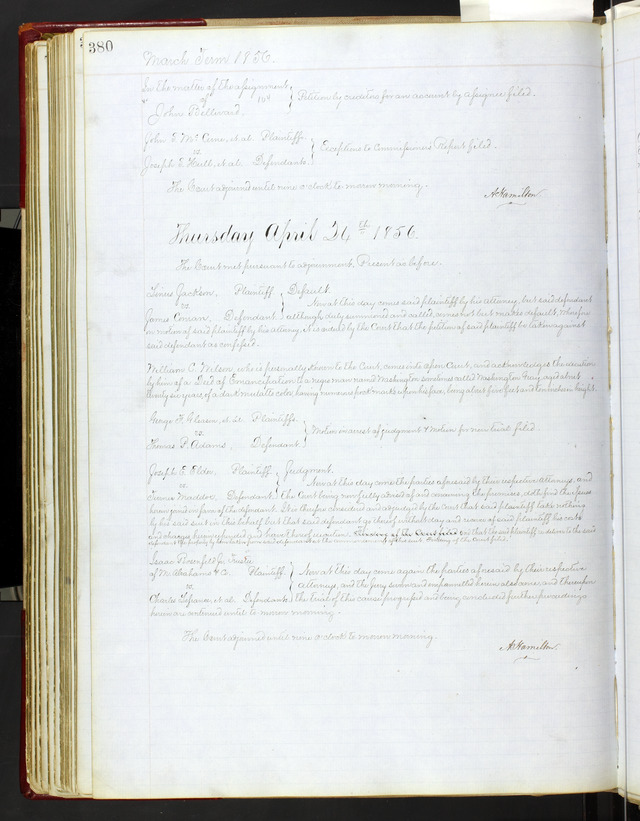 380
March Term 1856.
In the matter of the assignment
of
John Bellward.
Petition by creditors for an account by assignee filed.
John E. Mc Cune, et al. Plaintiffs.
vs.
Joseph E. Hall, et al. Defendants.
Exceptions to Commissioners Report filed.
The Court adjourned until nine o'clock to morrow morning.
A. Hamilton.
Thursday April 24th 1856.
The Court met pursuant to adjournment, Present as before.
Jackson, Plaintiff
vs.
James Conran, Defendant.
Default.
Now at this day comes said plaintiff by his attorney, but said defendant
although duly summoned and called, comes not but makes default. Wherefore
on motion of said plaintiff by his attorney, It is ordered by the Court that the petition of said plaintiff be taken against
said defendant as confessed.
William C. Wilson, who is personally known to the Court, comes into open Court, and acknowledges the execution
by him of a Deed of Emancipation to a negro man named Washington sometimes called Washington Gray, aged about
thirty six years of a dark mulatto color, having numerous pock marks upon his face, being about five feet and ten inches height.
George F. et al. Plaintiffs.
vs.
Thomas P. Adams, Defendant.
Motion in arrest of judgment & Motion for new trial filed
Joseph E. Elder, Plaintiff
vs.
Maddox, Defendant.
Judgment.
Now at this day come the parties aforesaid by their respective attorneys, and
the Court being now fully advised of and concerning the premises, doth find the issue
herein joined in favor of the defendant. It is therefore considered and adjudged by the Court that said plaintiff take nothing
by his said suit in this behalf but that said defendant go thereof without day and recover of said plaintiff his costs
and charges herein expended and have thereof execution. Finding of the Court filed
Isaac Rosenfeld Jr. Trustee
of M. Abrahams & Co. Plaintiff
vs.
Charles et al. Defendants.
Now at this day come again the parties aforesaid by their respective
attorneys, and the jury sworn and impannelled herein also come, and thereupon
the trial of this cause progressed and being concluded further proceedings
herein are continued until to morrow morning.
The Court adjourned until nine o'clock to morrow morning.
A. Hamilton.